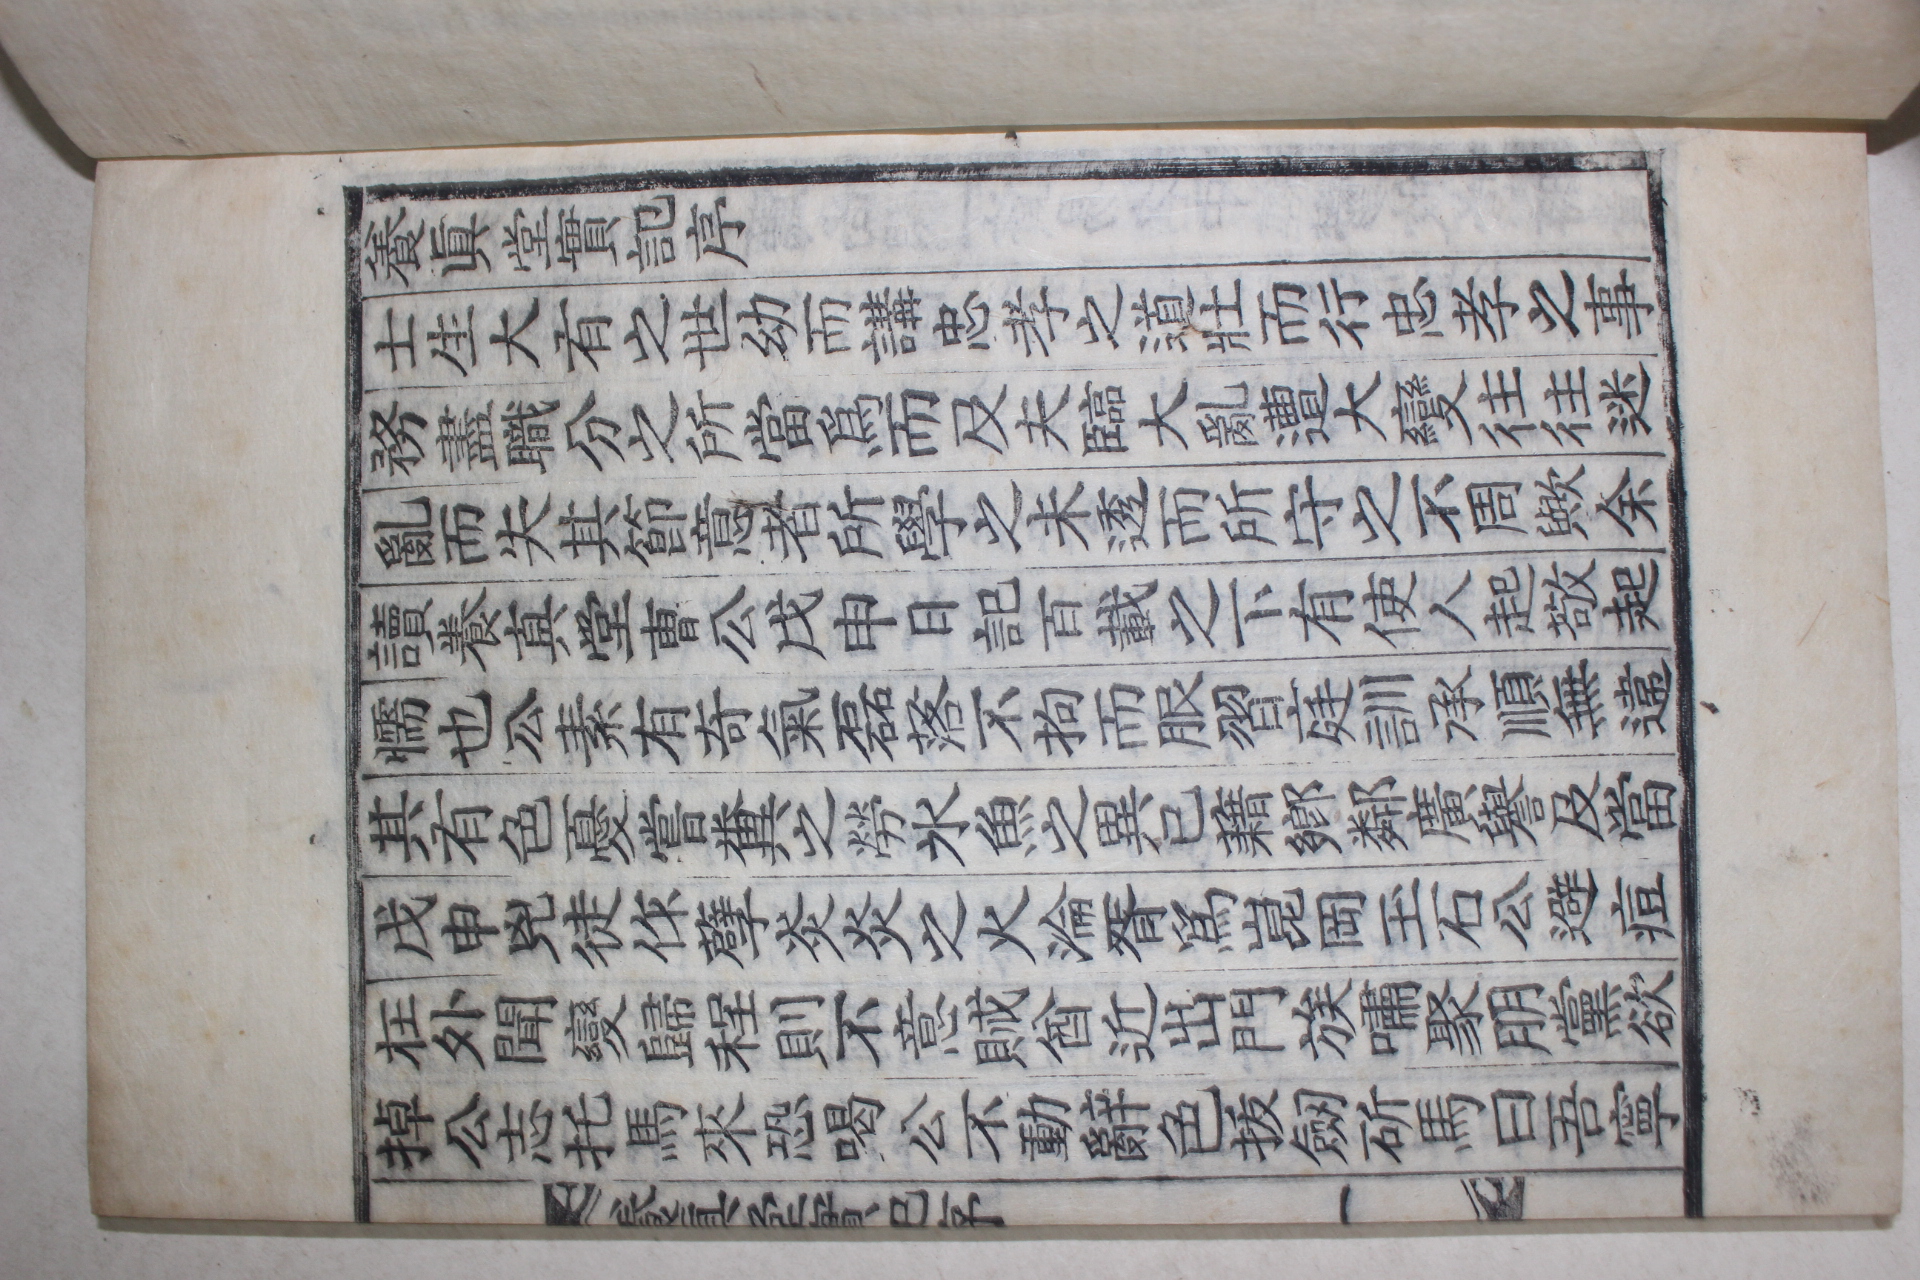 養眞堂實記序
士生大有之世幼而講忠孝之道壯而行忠孝之事
務盡職分之所當爲而及夫臨大亂遭大變往往迷
亂而失其節意者所學之未透而所守之不周歟余
讀養眞堂曺公戊申日記百載之下有使人起敬起
懦也公素有奇氣磊落不拘而服習庭訓承順無違
其有色憂嘗糞之勞氷魚之異已藉鄉鄰廣譽及當
戊申兇徒作孽炎炎之火淪胥爲崑岡玉石公避痘
在外聞變歸程則不意賊酋近出門族嘯聚朋黨欲
掉公志托馬來恐喝公不動辭色拔劒斫馬曰吾寧
養眞堂實記序 一